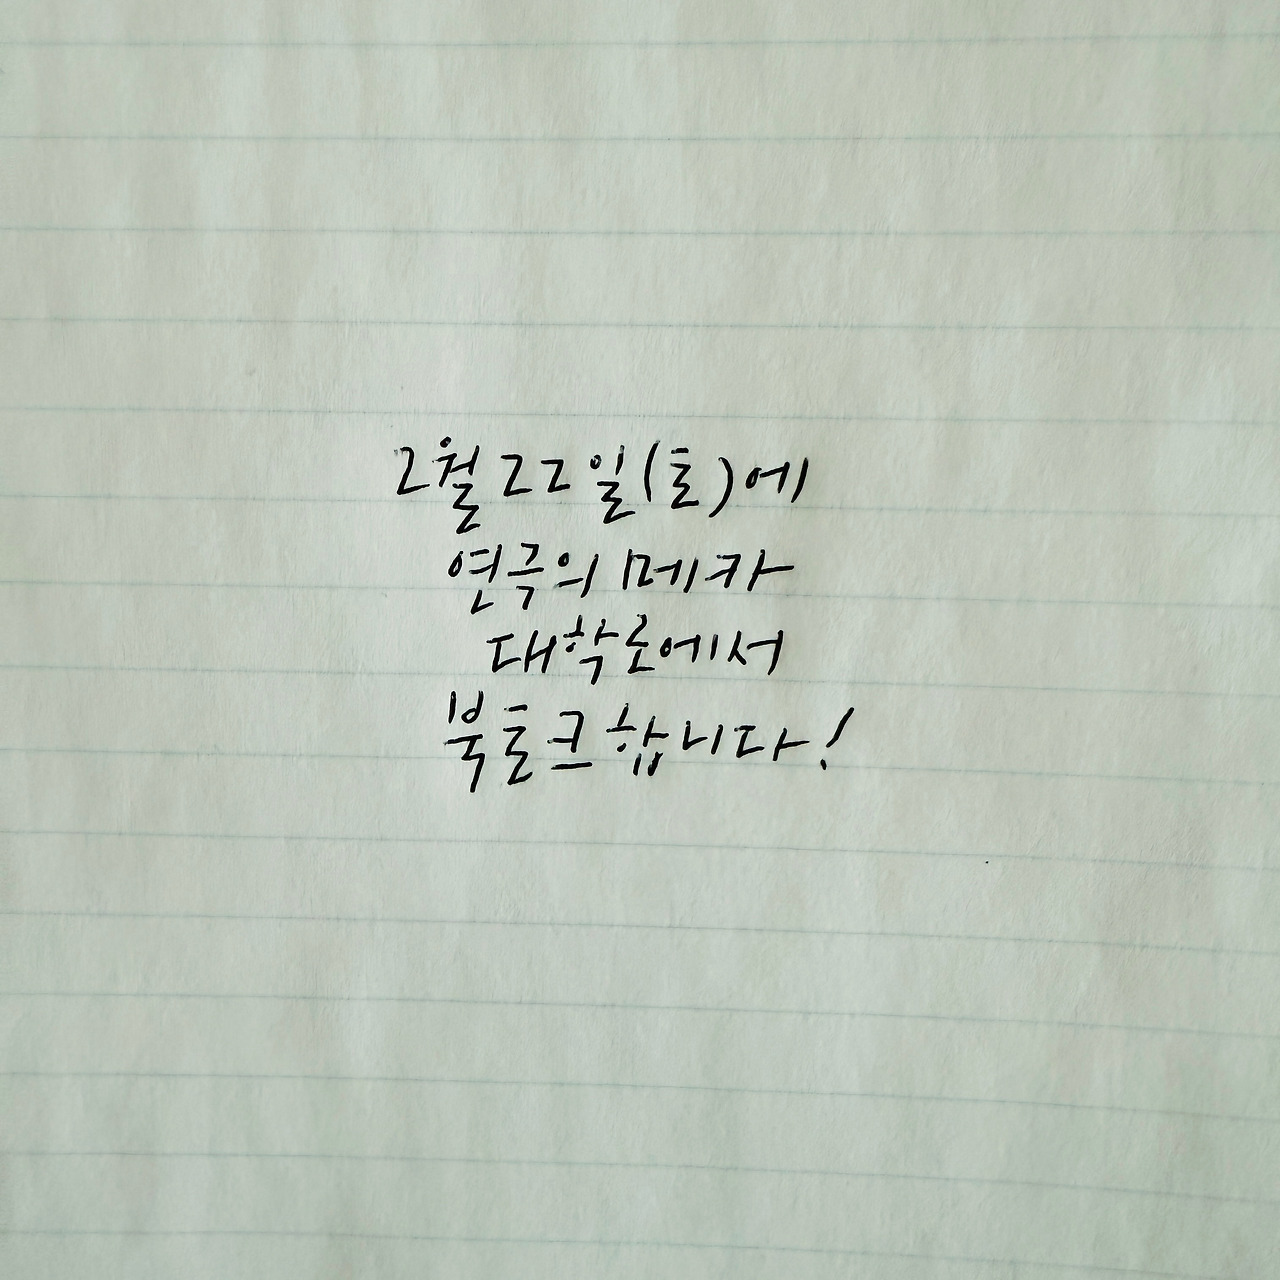 2월 22일(토)에
연극의 메카
대학로에서
북토크합니다!